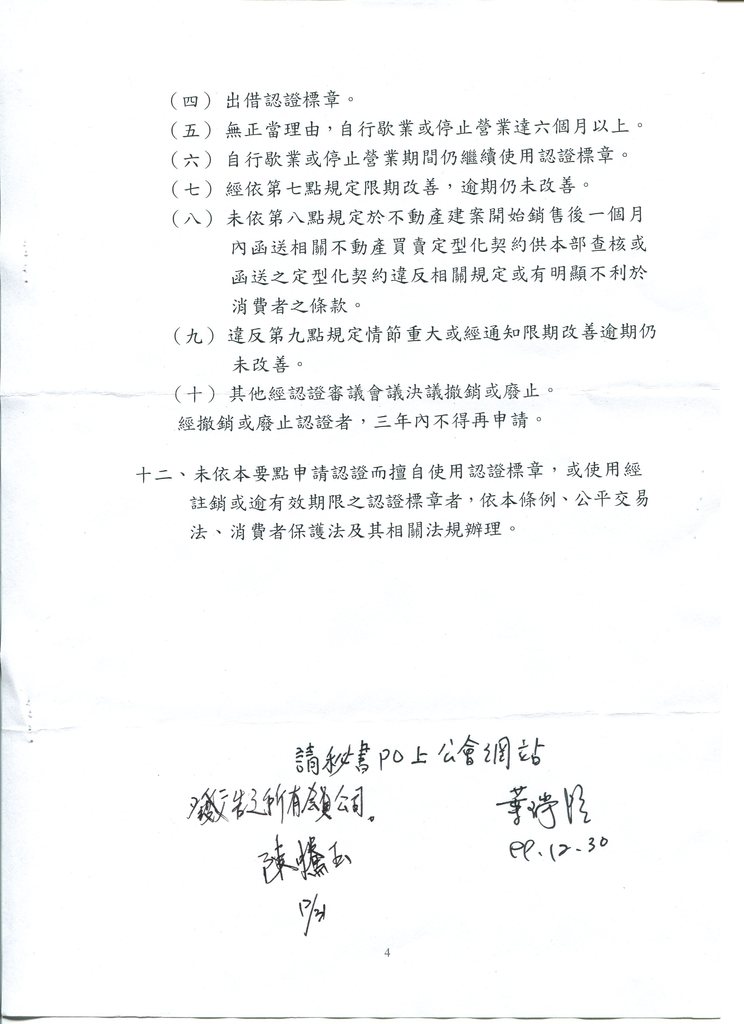 （四）出借認證標章。
（五）無正當理由，自行歇業或停止營業達六個月以上。
（六）自行歇業或停止營業期間仍繼續使用認證標章。
（七）經依第七點規定限期改善，逾期仍未改善。
（八）未依第八點規定於不動產建案開始銷售後一個月
內函送相關不動產買賣定型化契約供本部查核或
函送之定型化契約違反相關規定或有明顯不利於
消費者之條款。
（九）違反第九點規定情節重大或經通知限期改善逾期仍
未改善。
（十）其他經認證審議會議決議撤銷或廢止。
經撤銷或廢止認證者，三年內不得再申請。
十二、未依本要點申請認證而擅自使用認證標章，或使用經
註銷或逾有效期限之認證標章者，依本條例、公平交易
法、消費者保護法及其相關法規辦理。
請秘書PO上公會網站
所有會員公司。
99.12.30
陳玉
12/31
4